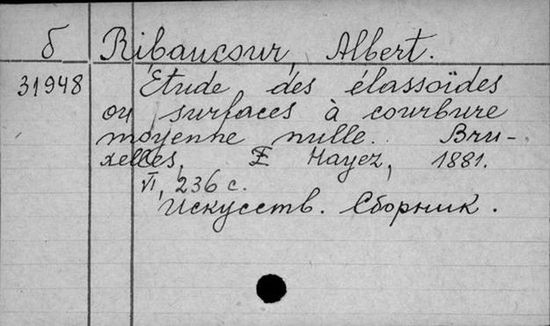 б Ribaucour, Albert.
31948 Étude des élassoïdes
ou surfaces à courbure
moyenne nulle. Bru-
xelles, F Hayez, 1881.
VI, 236 с.
Искусств. Сборник.